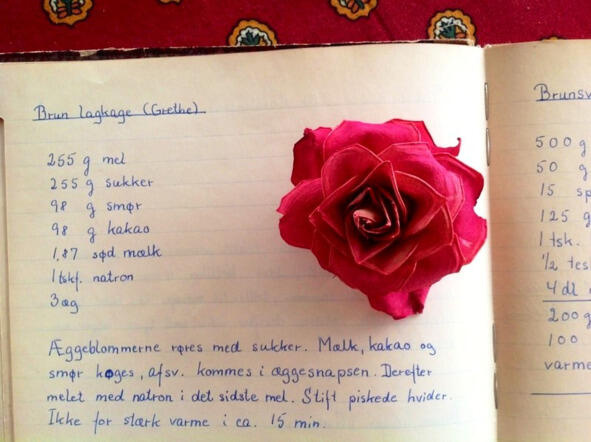 Brun lagkage (Grethe)
255 g mel
255 g sukker
98 g smør
98 g kakao
1,87 sød mælk
1 tskf. natron
3 æg
Æggeblommerne røres med sukker. Mælk, kakao og
smør koges, afsv. kommes i æggesnapsen. Derefter
melet med natron i det sidste mel. Stift piskede hvider.
Ikke for stærk varme i ca. 15 min.
Brunsv
500 g
50 g
15 sp
125 g
1 tsk.
1/2 tesk
4 dl
200 g
100
varme